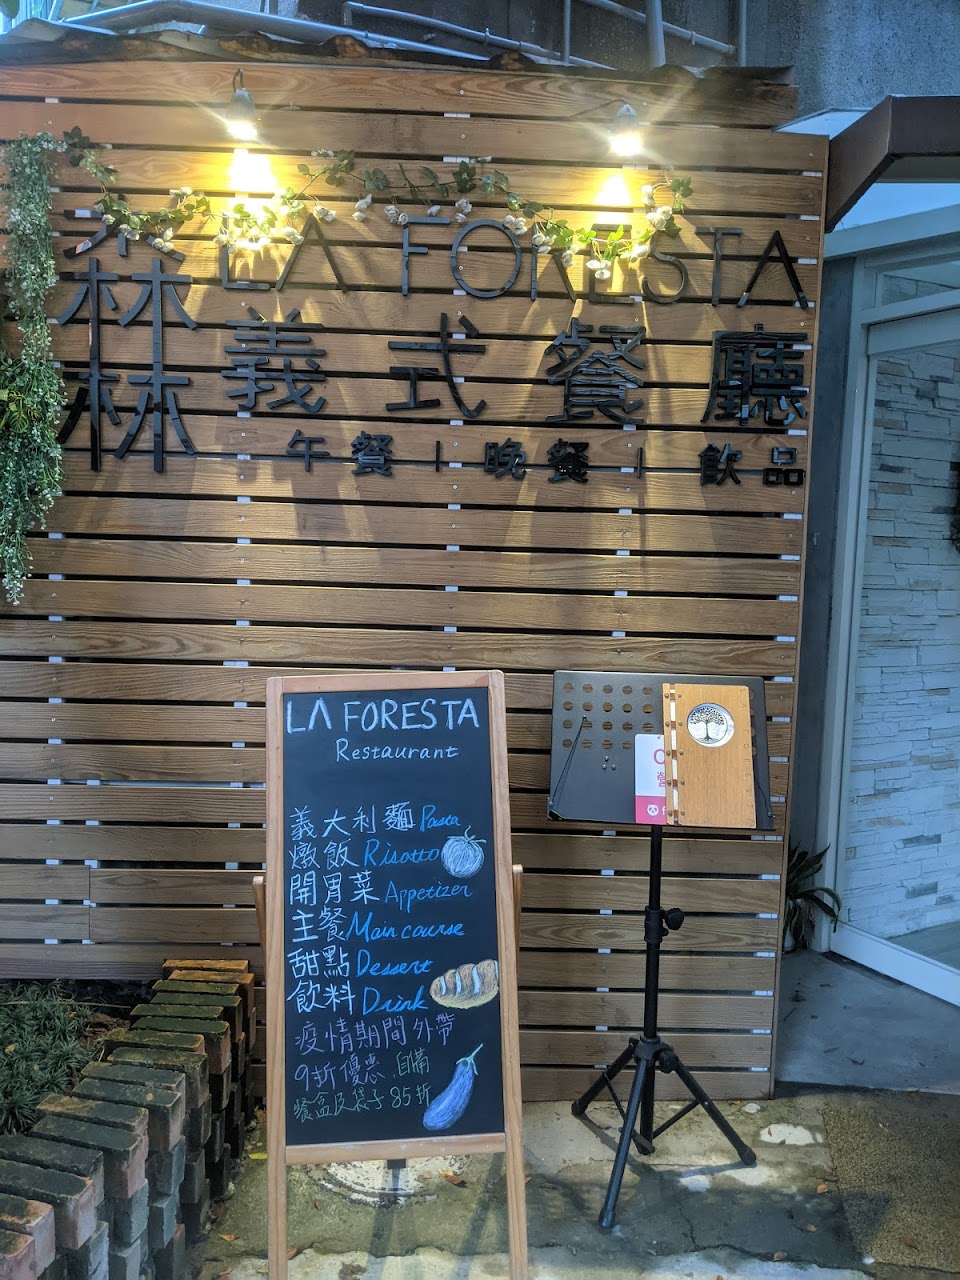 LA FORESTA
森林
義式餐廳
午餐 | 晚餐 | 飲品
LA FORESTA
Restaurant
義大利麵 Pasta
燉飯 Risotto
開胃菜 Appetizer
主餐 Main course
甜點 Dessert
飲料 Drink
疫情期間外帶
9折優惠 自備
餐盒及袋子 85折
營